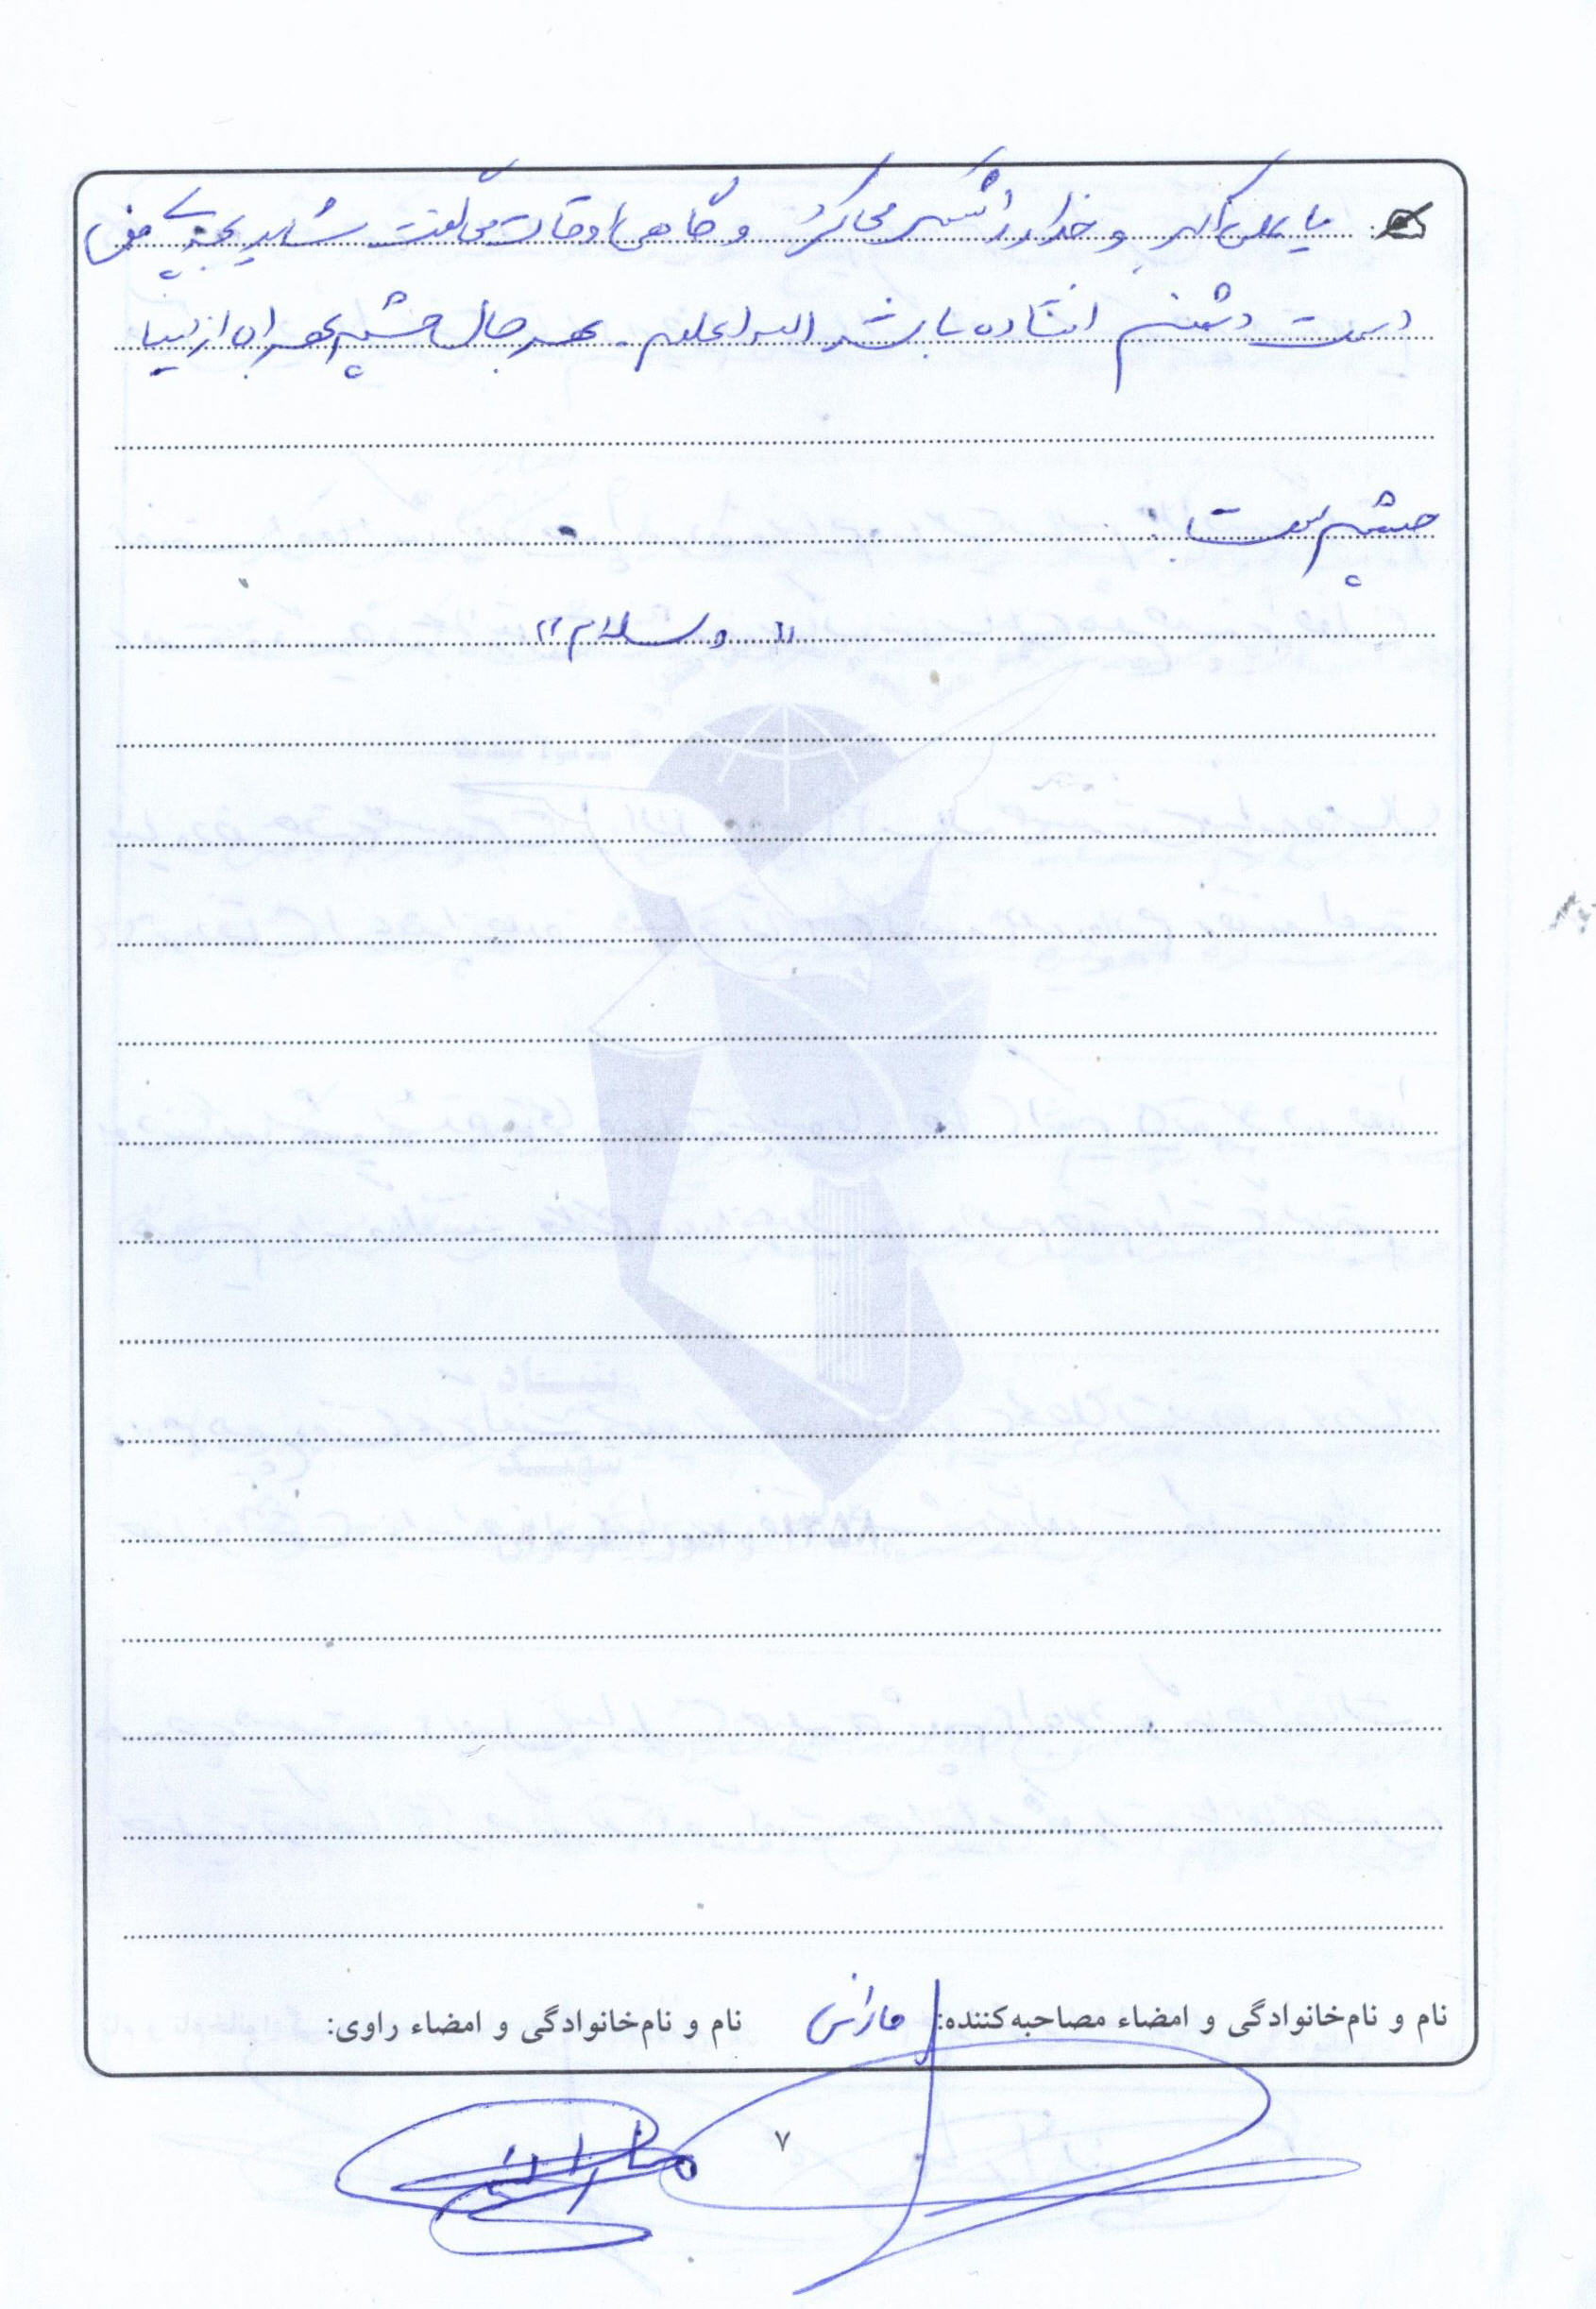 یا علی اکبر و خدا را شکر می کرد و گاهی اوقات می گفت شاید بچه ی من
دست دشمن افتاده باشد الله اعلم. بهر حال چشم براه از لیبا
چشم است.
"وسلام"
نام و نام‌خانوادگی و امضاء مصاحبه‌کننده: نام و نام‌خانوادگی و امضاء راوی:
۷